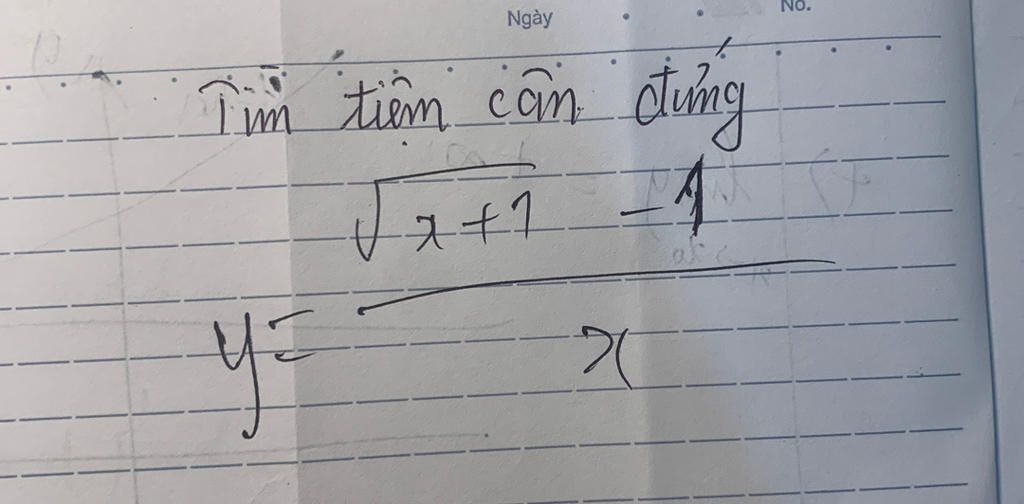 Ngày
No.
Tìm tiệm cân đứng
y = \frac{\sqrt{x+1} - 1}{x}